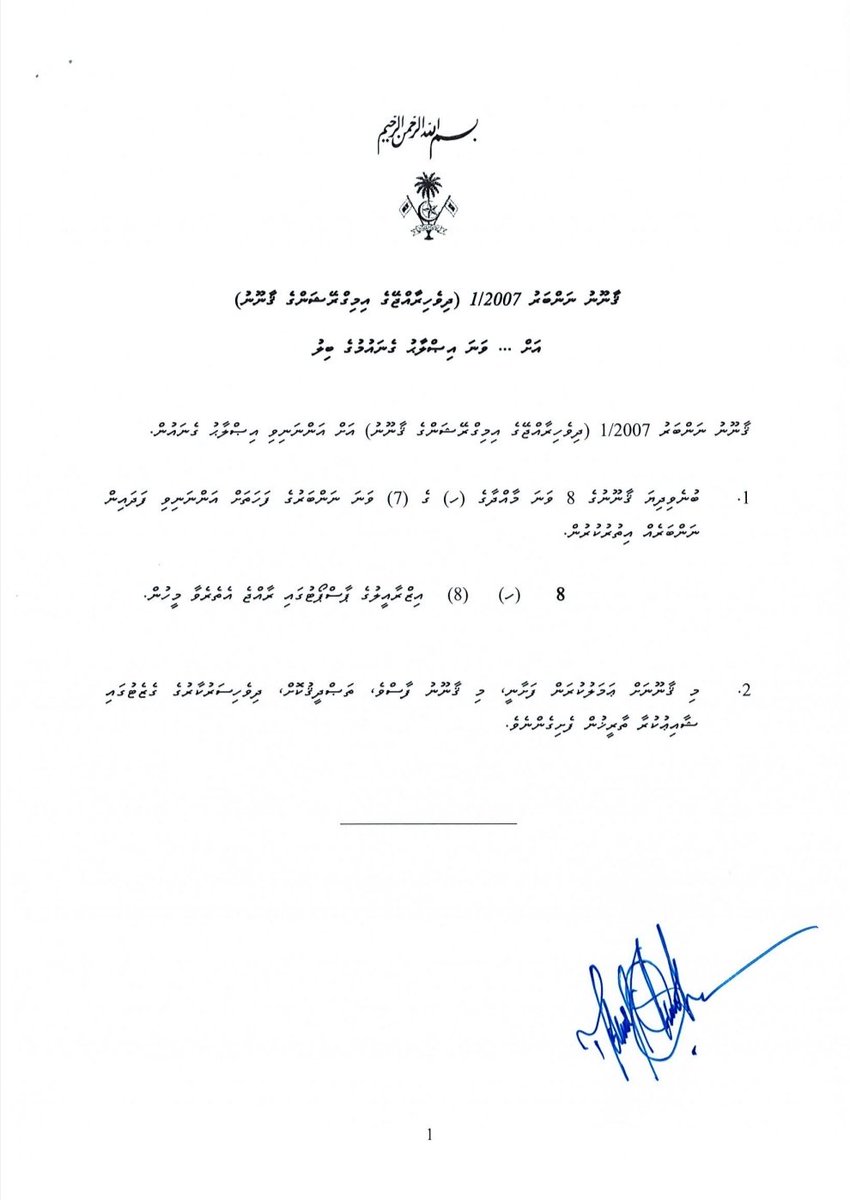 بسم الله الرحمن الرحيم
ޤާނޫނު ނަންބަރު 1/2007 (ދިވެހިރާއްޖޭގެ އިމިގްރޭޝަންގެ ޤާނޫނު)
އަށް ... ވަނަ އިޞްލާޙު ގެނައުމުގެ ބިލު
ޤާނޫނު ނަންބަރު 1/2007 (ދިވެހިރާއްޖޭގެ އިމިގްރޭޝަންގެ ޤާނޫނު) އަށް އަންނަނިވި އިޞްލާޙު ގެނައުން.
1. ބުނެވިދިޔަ ޤާނޫނުގެ 8 ވަނަ މާއްދާގެ (ށ) ގެ (7) ވަނަ ނަންބަރުގެ ފަހަތަށް އަންނަނިވި ފަދައިން
ނަންބަރެއް އިތުރުކުރުން.
8 (ށ) (8) އިޒްރާއީލުގެ ޕާސްޕޯޓުގައި ރާއްޖެ އެތެރެވާ މީހުން.
2. މި ޤާނޫނަށް ޢަމަލުކުރަން ފަށާނީ، މި ޤާނޫނު ފާސްވެ، ތަޞްދީޤުކޮށް، ދިވެހިސަރުކާރުގެ ގެޒެޓުގައި
ޝާއިޢުކުރާ ތާރީޚުން ފެށިގެންނެވެ.
1